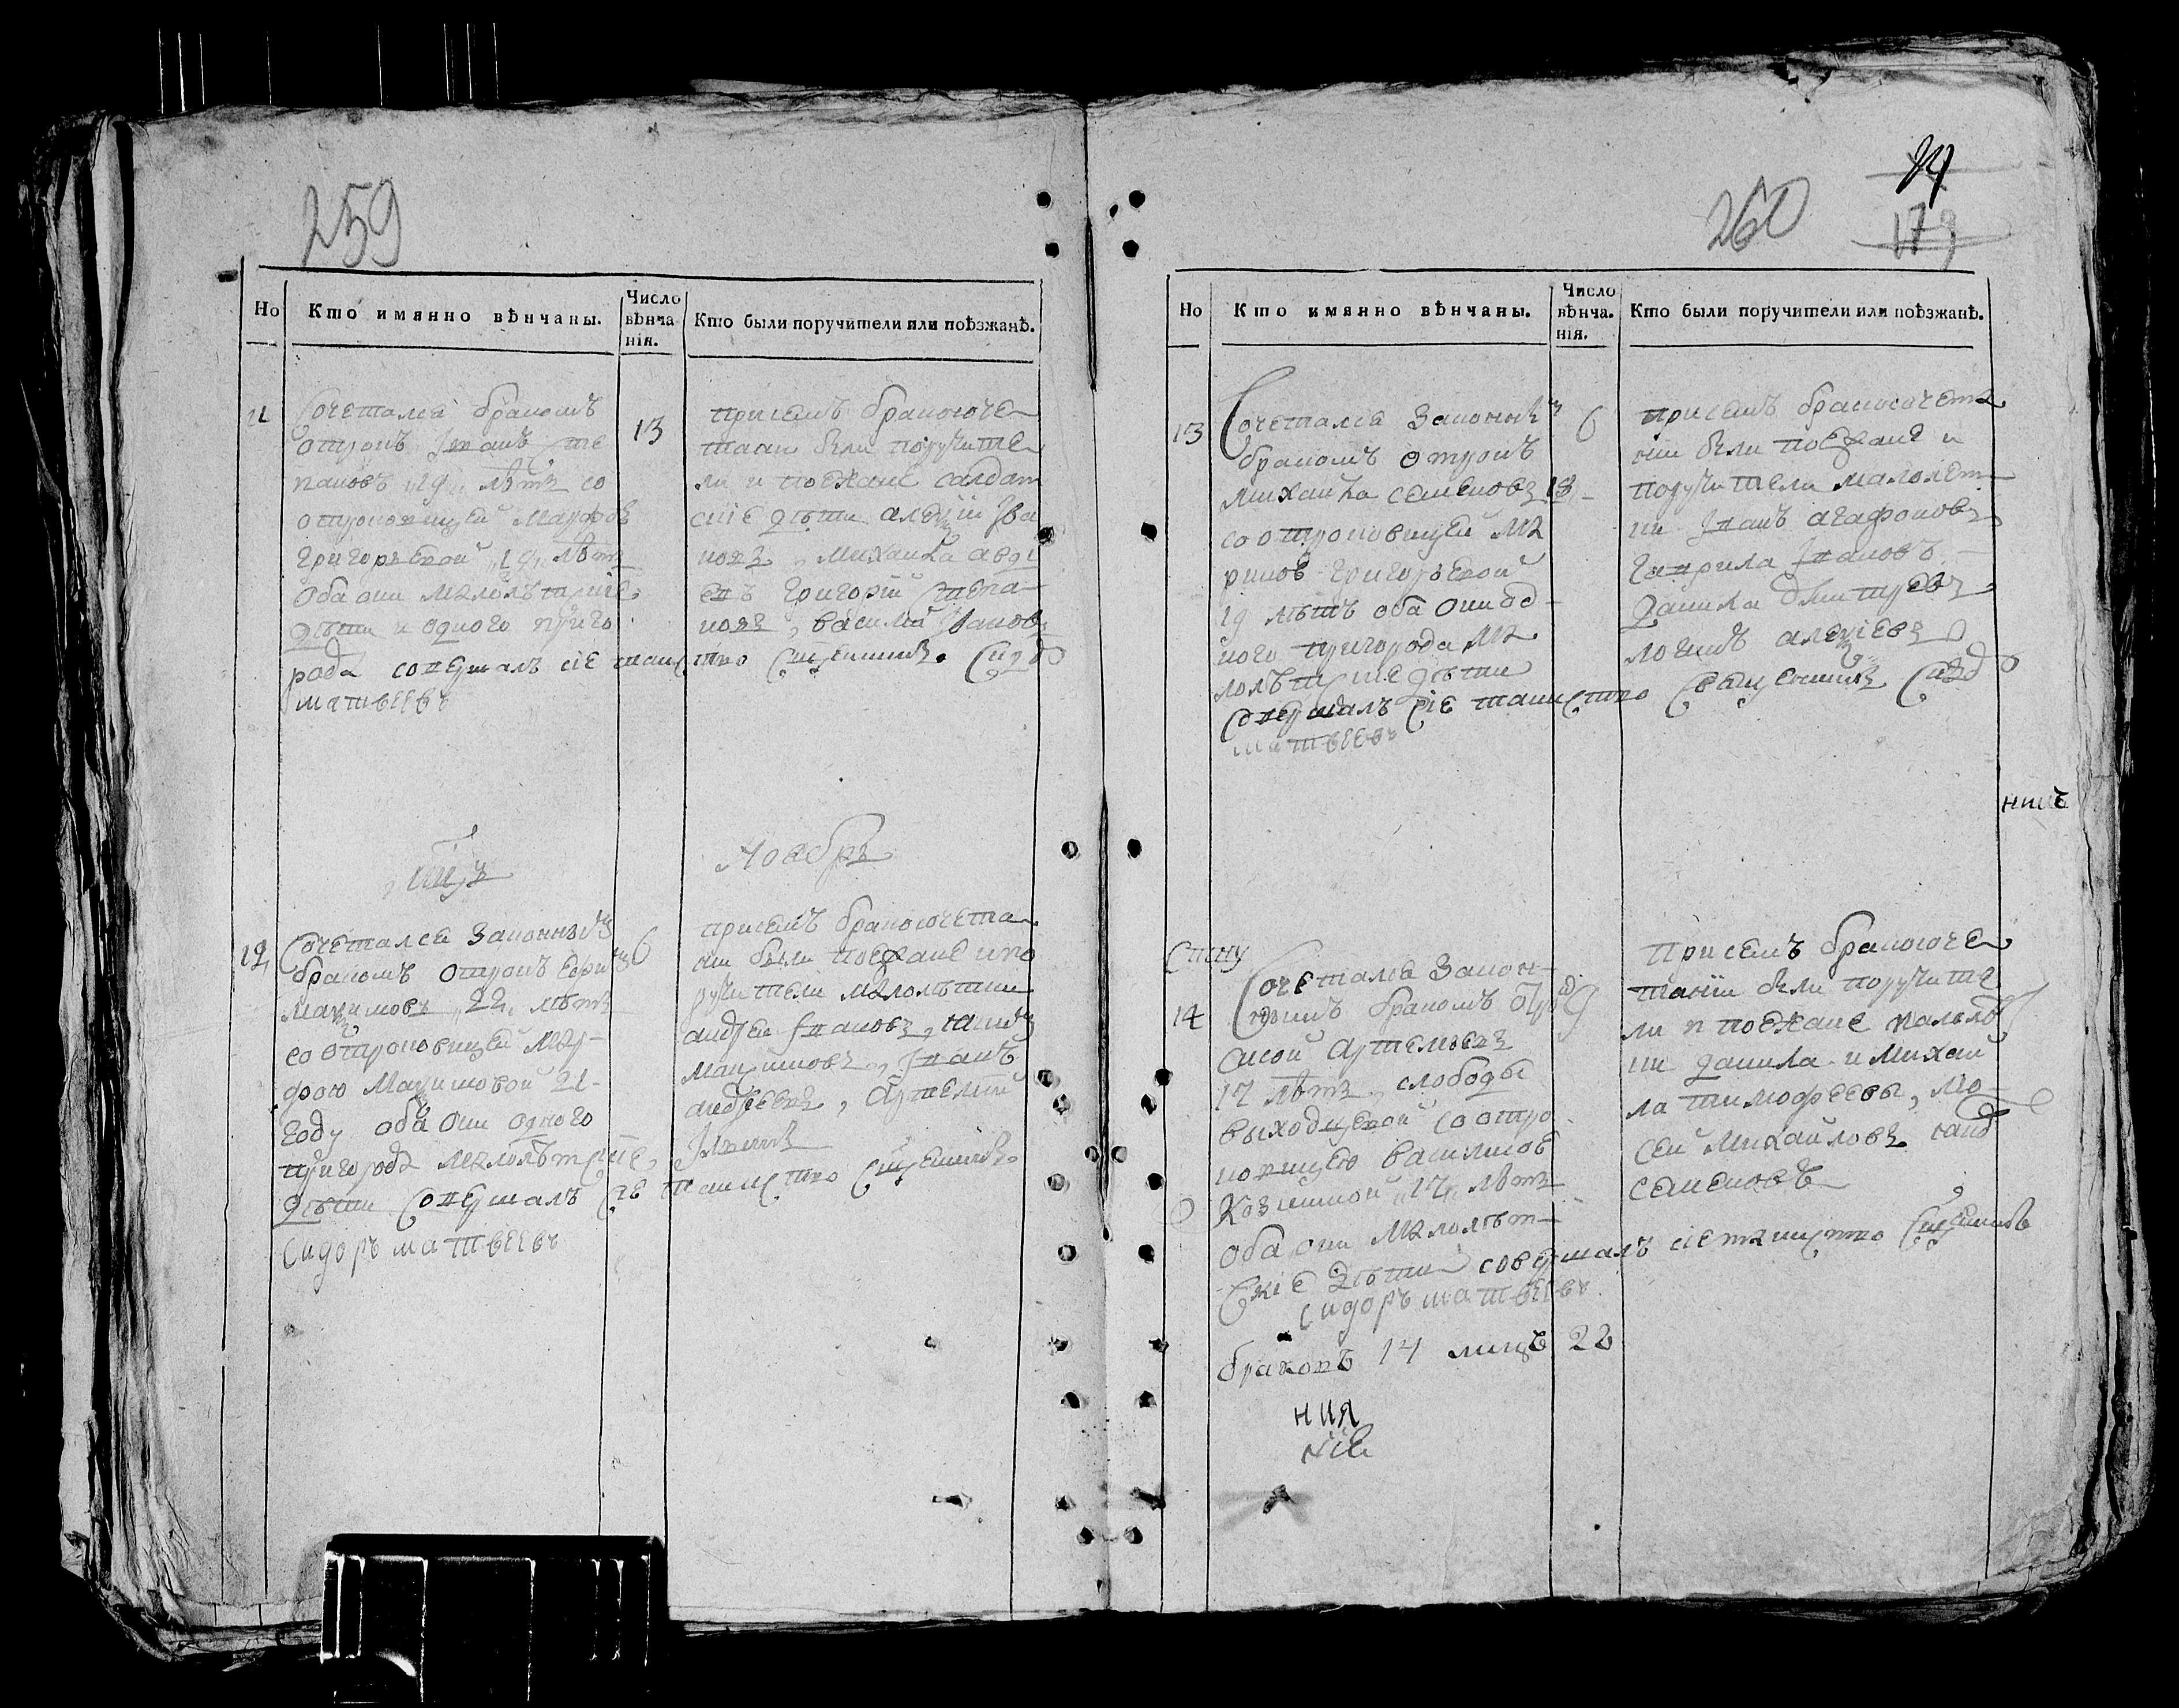 259
Но
Кто имянно вѣнчаны.
Число
вѣнча
нія.
Кто были поручители или поѣзжанѣ.
11
Сочетался бракомъ
отрокъ Іванъ Сте
пановъ 19 лѣтъ со
отроковицей Марфов
григорьевой 19 лѣтъ
оба они малолѣтніе
дѣти и одного приго
рода совершалъ сіе таинство священникъ Сидоръ
матвеевъ
13
присемъ бракосоче
тани были поручите
ли и поезжане салдат
скіе дѣти алексѣй Ива
новъ, михаила авди
евъ григорій Степа
новъ, василій Іванов
Ноябрь
12
Сочетался законнымъ
бракомъ отрокъ
макимовъ 22 лѣтъ
со отроковицей мар
фою Макимовой 21
году оба они одного
пригорода малолѣтніе
дѣти совершалъ сіе таинство священникъ
Сидоръ матвеевъ
6
присемъ бракосочета
ни были поезжане ипо
ручители малолѣтни
андреи Івановъ,
макимовъ, Іванъ
андреевъ, Артемій
260
179
Но
Кто имянно вѣнчаны.
Число
вѣнча.
нія.
Кто были поручители или поѣзжанѣ.
13
Сочетался законнымъ
бракомъ отрокъ
михаила семеновъ 18
со отроковицей ма
риной григорьевой
19 лѣтъ оба они од
ного пригорода ма
лолѣтніе дѣти
совершалъ сіе таинство священникъ Сидоръ
матвеевъ
6
присемъ бракосочета
нии были поезжане и
поручители малолет
ни Іванъ агафоновъ
гаврила Івановъ
данила дмитреевъ
логинъ алексіевъ
14
Сочетался закон
нымъ бракомъ отрокъ
сисой Артемьевъ
17 лѣтъ, слободы
выходцевой со отро
ковицею василисов
Козминой 17 лѣтъ
оба они малолѣт
скіе дѣти совершалъ сіе таинство священникъ
Сидоръ матвеевъ
9
Присемъ бракосоче
таніи были поручите
ли и поезжане
ни данила и Михаи
ла тимофеевы, мо
сеи михайловъ
семеновъ
браковъ 14 лицъ 22
ния